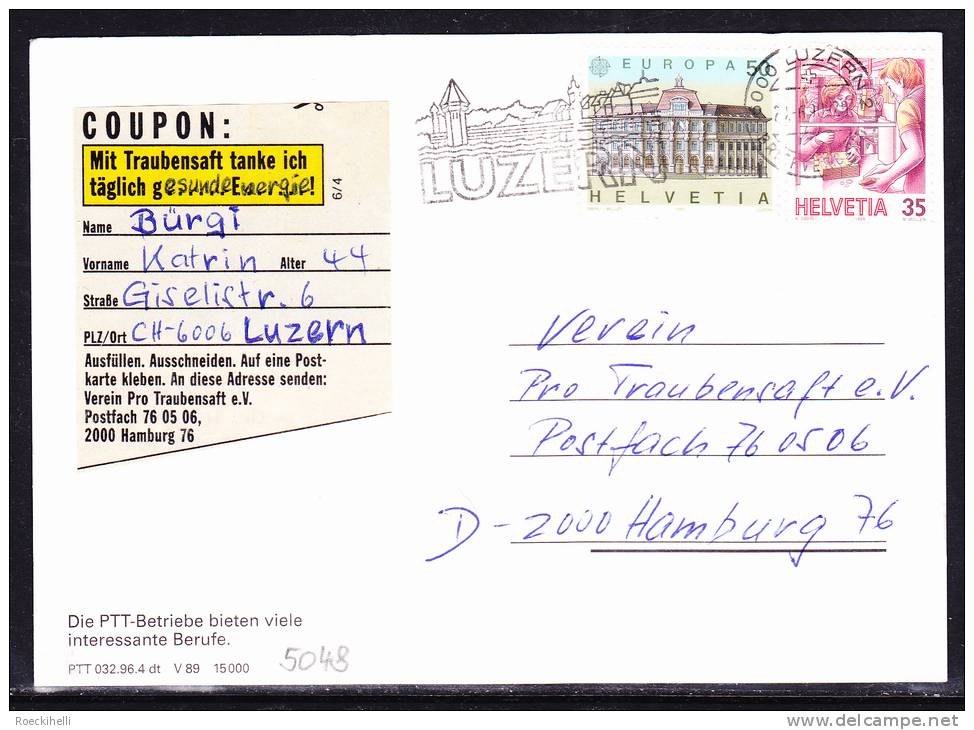 COUPON:
Mit Traubensaft tanke ich
täglich gesunde Energie!
6/4
Name Bürgi
Vorname Katrin Alter 44
Straße Giselistr. 6
PLZ/Ort CH-6006 Luzern
Ausfüllen. Ausschneiden. Auf eine Post-
karte kleben. An diese Adresse senden:
Verein Pro Traubensaft e.V.
Postfach 76 05 06,
2000 Hamburg 76
LUZERN
EUROPA 50
HELVETIA
LUZERN 2
HELVETIA 35
Verein
Pro Traubensaft e.V.
Postfach 76 05 06
D-2000 Hamburg 76
Die PTT-Betriebe bieten viele
interessante Berufe.
PTT 032.96.4 dt V 89 15 000
5048
Roeckihelli
delcampe.net